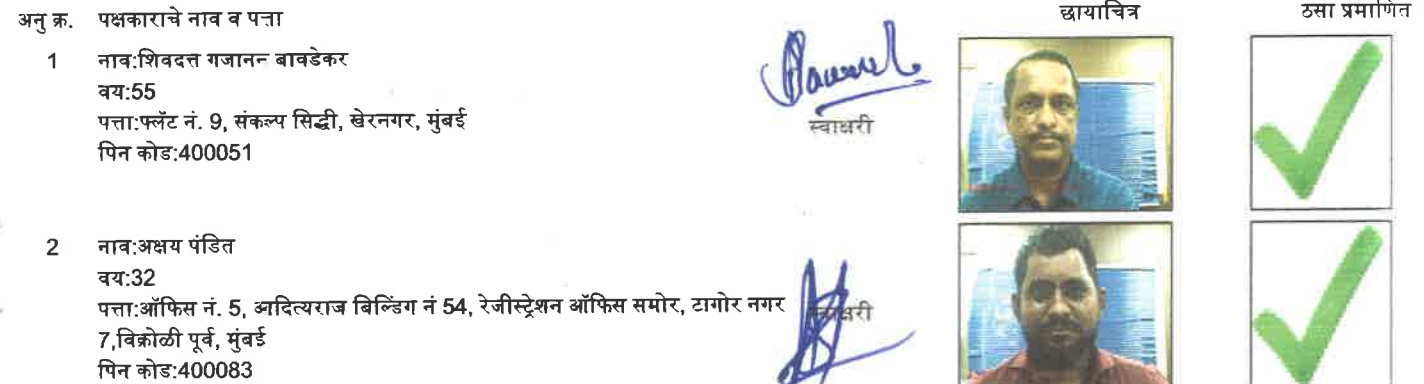 अनु क्र. पक्षकाराचे नाव व पत्ता छायाचित्र ठसा प्रमाणित
1 नाव:शिवदत्त गजानन बावडेकर
वय:55
पत्ता:फ्लॅट नं. 9, संकल्प सिद्धी, खेरनगर, मुंबई
पिन कोड:400051
स्वाक्षरी
2 नाव:अक्षय पंडित
वय:32
पत्ता:ऑफिस नं. 5, आदित्यराज बिल्डिंग नं 54, रेजीस्ट्रेशन ऑफिस समोर, टागोर नगर
7,विक्रोळी पूर्व, मुंबई
पिन कोड:400083
स्वाक्षरी